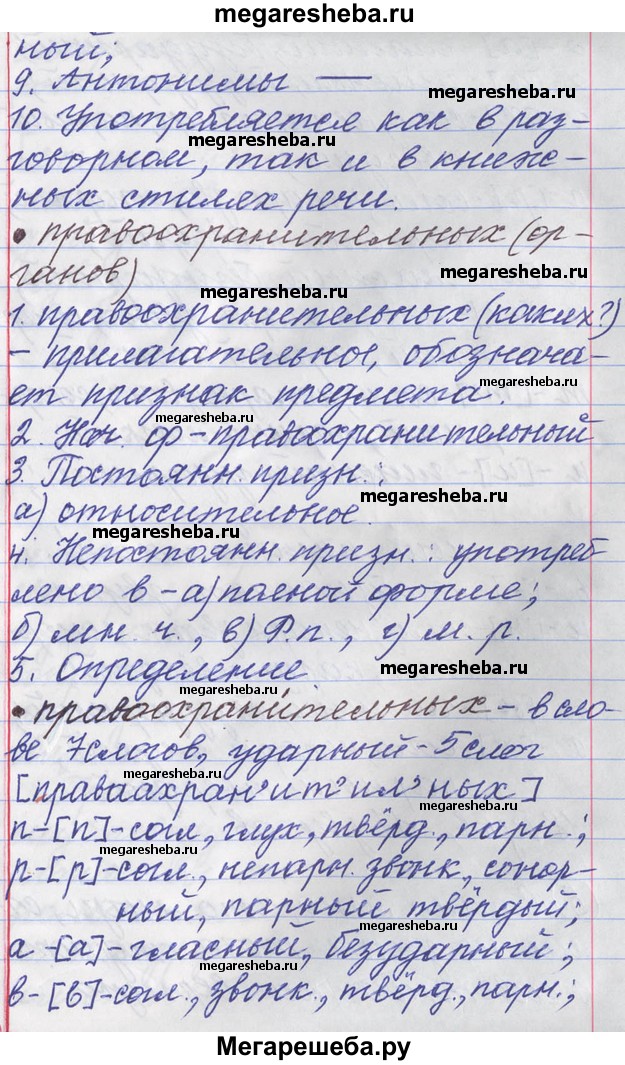 megaresheba.ru
ный;
9. Антонимы —
megaresheba.ru
10. Употребляется как в раз-
megaresheba.ru
говорном, так и в книж-
ных стилях речи.
• правоохранительных (ор-
ганов)
megaresheba.ru
megaresheba.ru
1. правоохранительных (каких?)
- прилагательное, обознача-
ет признак предмета.
megaresheba.ru
megaresheba.ru
2. Нач. ф - правоохранительный
3. Постоянн. призн.:
а) относительное.
megaresheba.ru
4. Непостоянн. призн.: употреб
лено в - а) полной форме;
б) мн. ч., в) Р.п., г) м. р.
megaresheba.ru
5. Определение.
megaresheba.ru
• правоохрани́тельных - в сло-
ве 7 слогов, ударный - 5 слог
megaresheba.ru
[праваахран'ит'ил'ных]
megaresheba.ru
п - [п] - согл., глух., твёрд., парн.;
megaresheba.ru
р - [р] - согл., непарн. звонк., сонор-
megaresheba.ru
ный, парный твёрдый;
а - [а] - гласный, безударный;
megaresheba.ru
в - [в] - согл., звонк., твёрд., парн.;
megaresheba.ru
Мегарешеба.ру